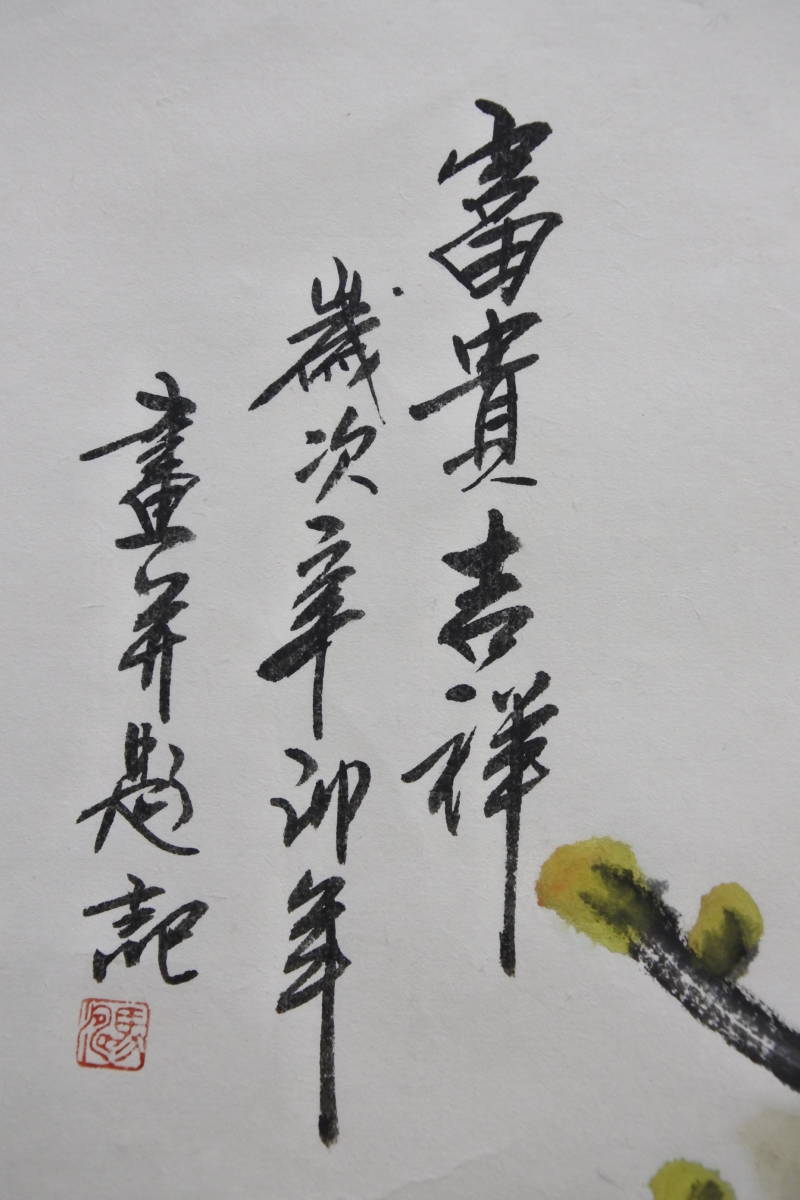 富貴吉祥
歲次辛卯年
畫并題記